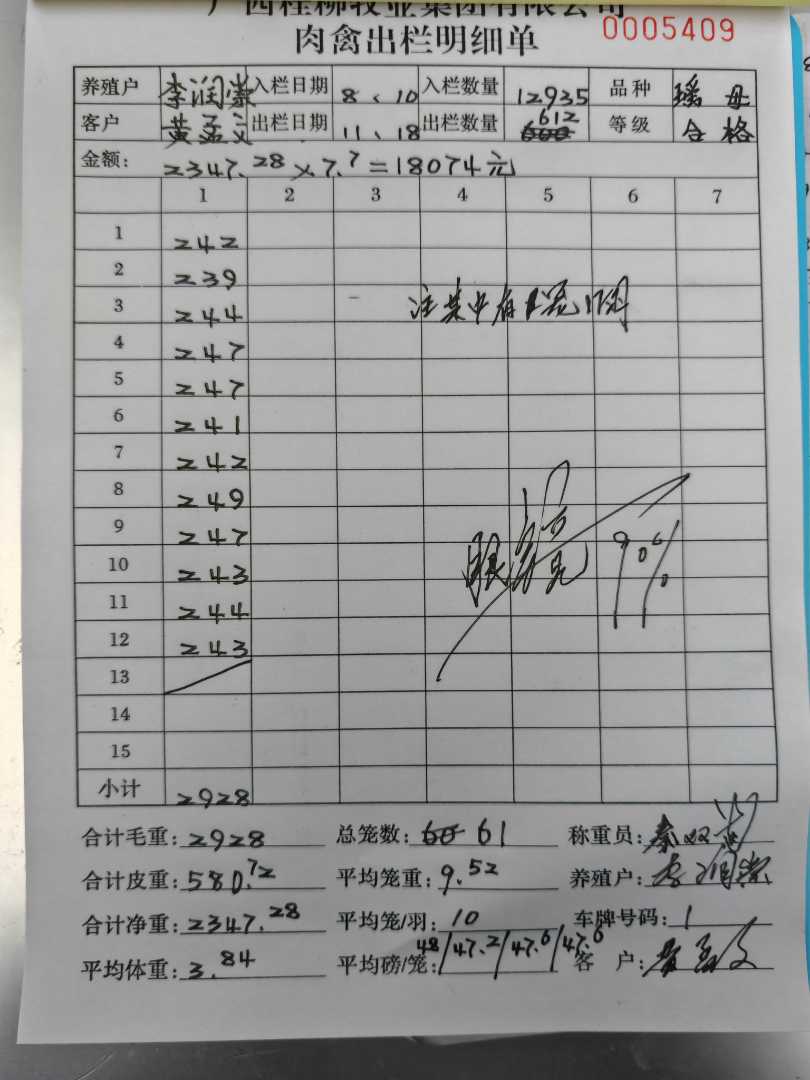 广西桂柳牧业集团有限公司
肉禽出栏明细单 0005409
养殖户 李润崇 入栏日期 8、10 入栏数量 12935 品种 瑶母
客户 黄孟文 出栏日期 11、18 出栏数量 612 等级 合格
金额: 2347.28×7.7=18074元
1 2 3 4 5 6 7
1 242
2 239
3 244
4 247
5 247
6 241
7 242
8 249
9 247
10 243
11 244
12 243
13
14
15
注其中有
小计 2928
合计毛重: 2928 总笼数: 60 61 称重员: 秦双
合计皮重: 580.72 平均笼重: 9.52 养殖户: 李润崇
合计净重: 2347.28 平均笼/羽: 10 车牌号码: 1
平均体重: 3.84 平均磅/笼: 48/47.2/47.6/47.6 客户: 黄孟文